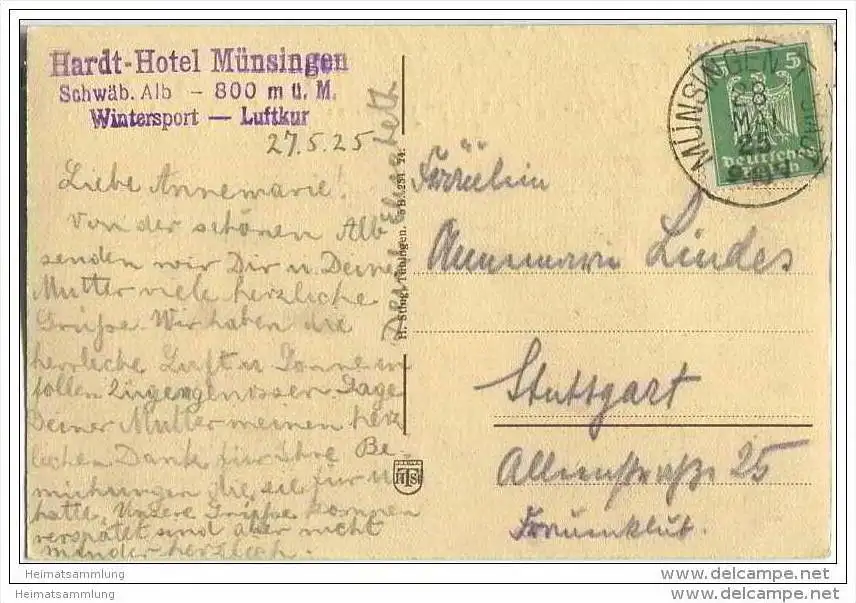 Hardt-Hotel Münsingen
Schwäb. Alb - 800 m ü. M.
Wintersport — Luftkur
27.5.25
Liebe Annemarie!
Von der schönen Alb
senden wir Dir u. Deiner
Mutter viele herzliche
Grüße. Wir haben die
herrliche Luft u Sonne in
vollen Zügen genossen.
Deiner Mutter meinen herz
lichen Dank für Ihre Be-
mühungen die sie für u
hatte, Unsere Grüße kommen
verspätet sind aber nicht
minder herzlich.
Elisabeth
H. Sting, Tübingen. 5 B. 251 74.
HTSt
MÜNSINGEN
28
MAI
25
5 5
Deutsches
Reich
Fräulein
Annemarie Lindes
Stuttgart
Alleenstraße 25
Frauenklub.
Heimatsammlung
Heimatsammlung
www.delcampe.net
www.delcampe.net